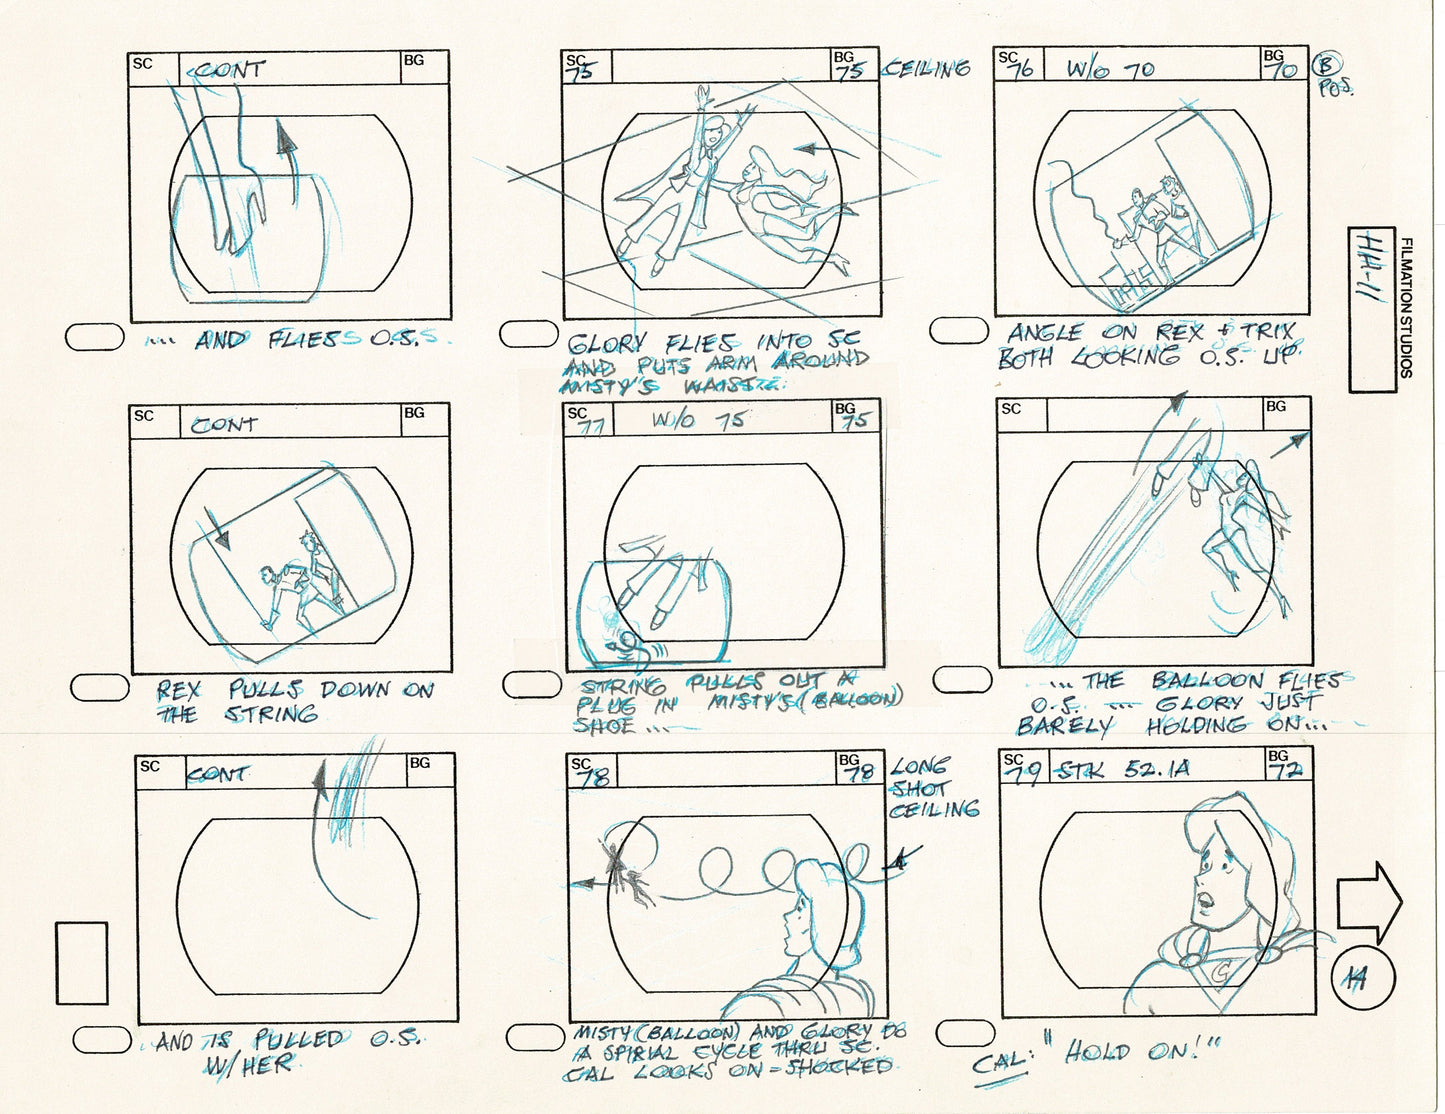 SC CONT BG
... AND FLIES O.S.
SC 75 BG 75 CEILING
GLORY FLIES INTO SC
AND PUTS ARM AROUND
MISTY'S WAIST.
SC 76 W/O 70 BG 70 B POS.
ANGLE ON REX + TRIX
BOTH LOOKING O.S. UP.
HH-11
FILMATION STUDIOS
SC CONT BG
REX PULLS DOWN ON
THE STRING
SC 77 W/O 75 BG 75
STRING PULLS OUT A
PLUG IN MISTY'S (BALLOON)
SHOE...
SC BG
... THE BALLOON FLIES
O.S. ... GLORY JUST
BARELY HOLDING ON...
SC CONT BG
AND IS PULLED O.S.
W/HER
SC 78 BG 78 LONG
SHOT
CEILING
MISTY (BALLOON) AND GLORY DO
A SPIRIAL CYCLE THRU SC.
CAL LOOKS ON - SHOCKED
SC 79 STK 52.1A BG 72
G
CAL: "HOLD ON!"
14